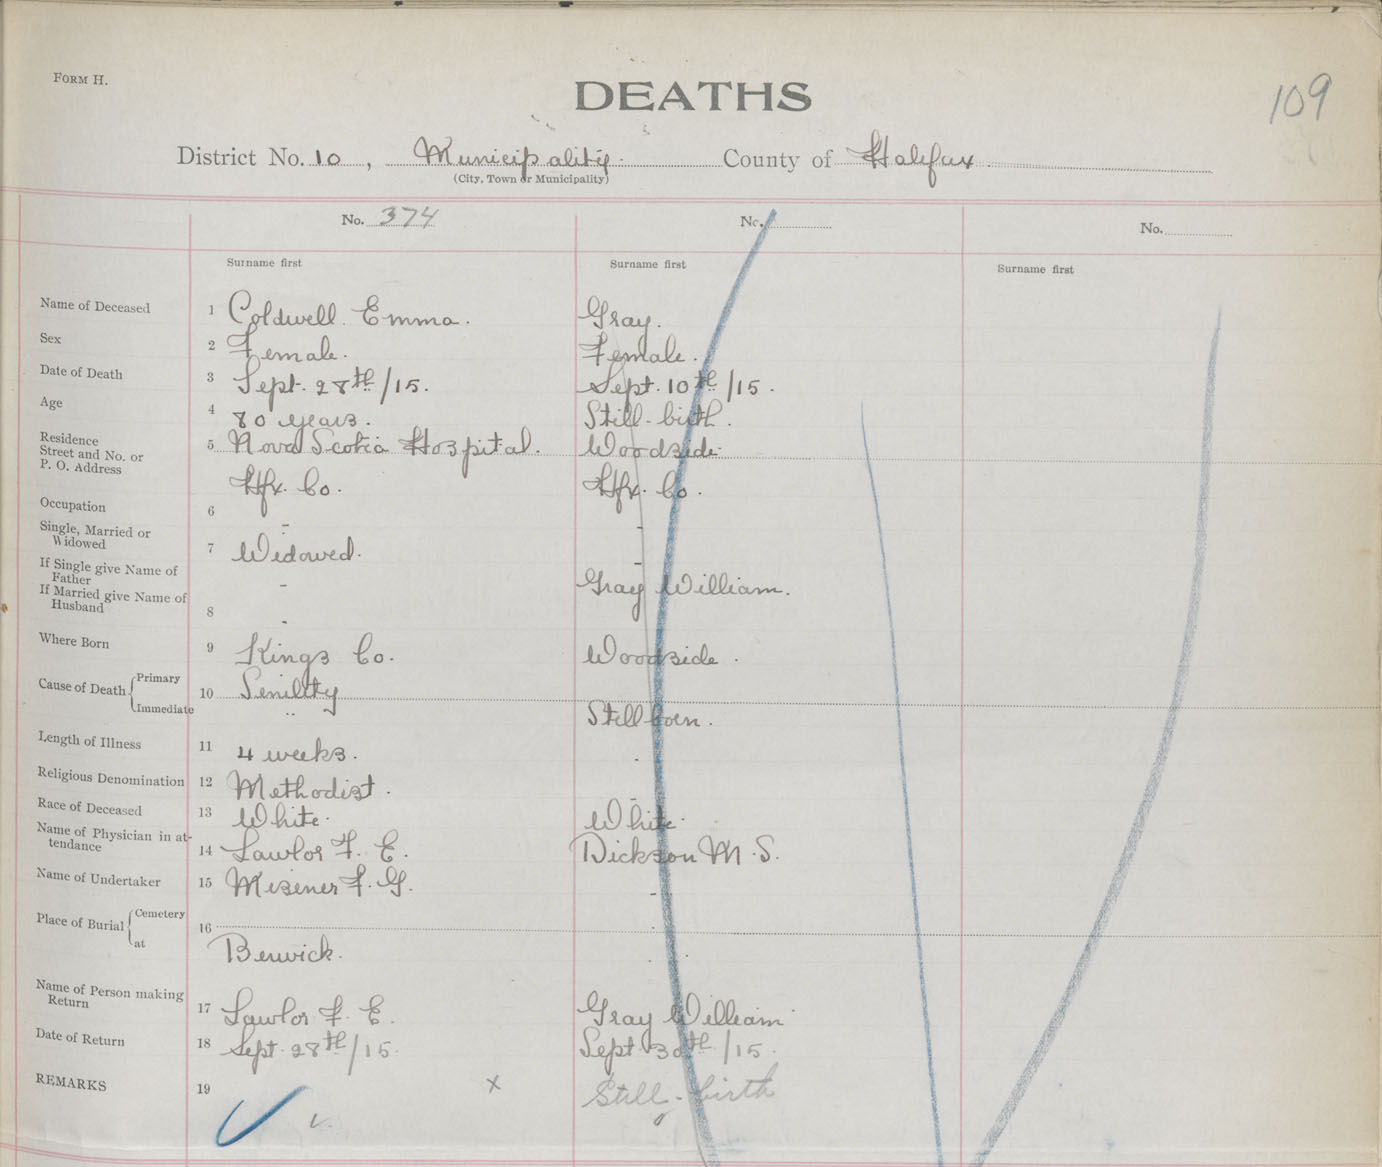 FORM H.
DEATHS
109
District No. 10, Municipality. County of Halifax
(City, Town or Municipality)
No. 374 No. No.
Surname first Surname first Surname first
Name of Deceased 1 Coldwell. Emma. Gray.
Sex 2 Female. Female.
Date of Death 3 Sept. 28th/15. Sept. 10th/15.
Age 4 80 years. Still-birth.
Residence
Street and No. or
P. O. Address
5 Nova Scotia Hospital. Woodside.
Hfx. Co. Hfx. Co.
Occupation 6 - -
Single, Married or
Widowed
7 Widowed. -
If Single give Name of
Father
- Gray William.
If Married give Name of
Husband
8 -
Where Born 9 Kings Co. Woodside.
Cause of Death Primary 10 Senility
Immediate " Stillborn.
Length of Illness 11 4 weeks. -
Religious Denomination 12 Methodist. -
Race of Deceased 13 White. White.
Name of Physician in at-
tendance
14 Lawlor F. E. Dickson M. S.
Name of Undertaker 15 Misener F. G. -
Place of Burial Cemetery 16
at Berwick.
Name of Person making
Return
17 Lawlor F. E. Gray William
Date of Return 18 Sept. 28th/15. Sept. 30th/15.
REMARKS 19 x Still-birth